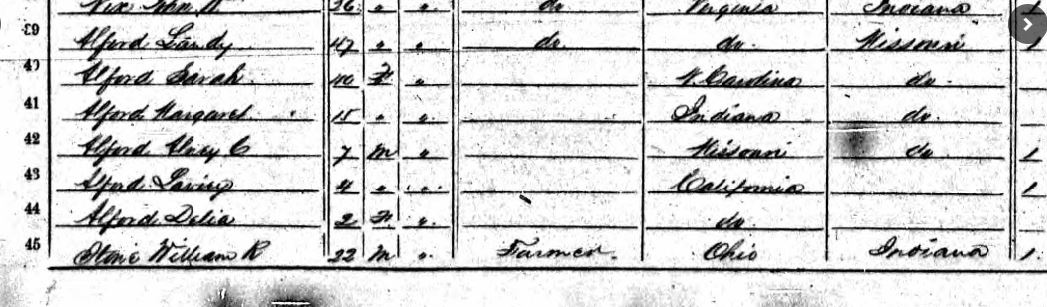 Nix John W 36 " " do Virginia Indiana 1
39 Alford Landy 47 " " do. do. Missouri 1
40 Alford Sarah 40 F " N. Carolina do.
41 Alford Margaret 15 " " Indiana do.
42 Alford C 7 M " Missouri do 1
43 Alford 4 " " California 1
44 Alford Delia 2 F " do.
45 Stone William R 22 M " Farmer. Ohio Indiana 1.